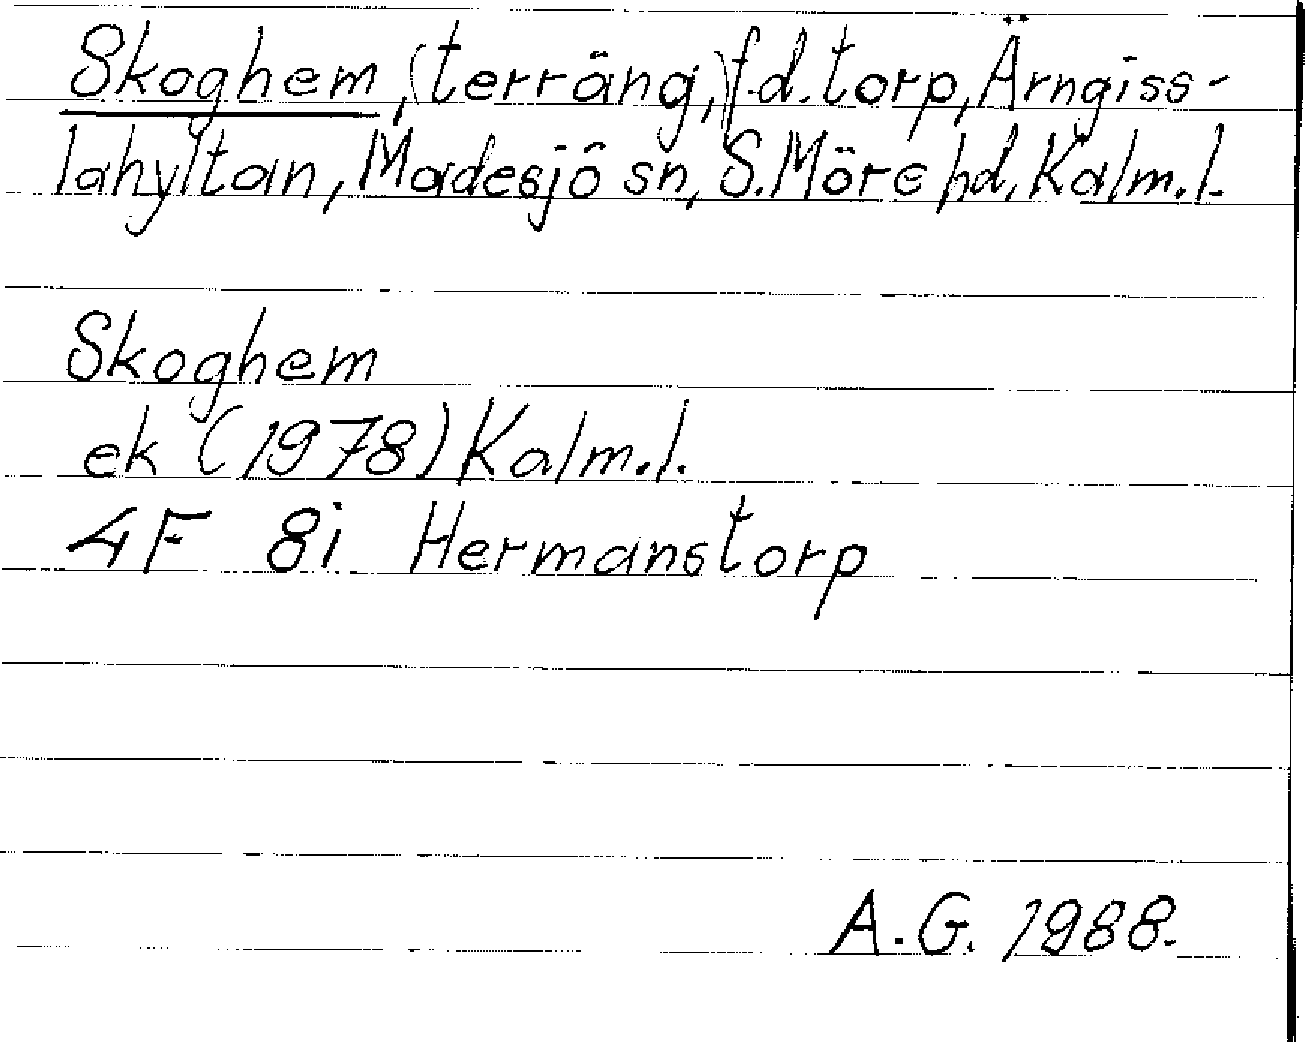 Skoghem, (terräng,) f.d. torp, Ärngiss-
lahyltan, Madesjö sn, S. Möre hd, Kalm. l.
Skoghem
ek (1978) Kalm. l.
4F 8i Hermanstorp
A.G. 1988.